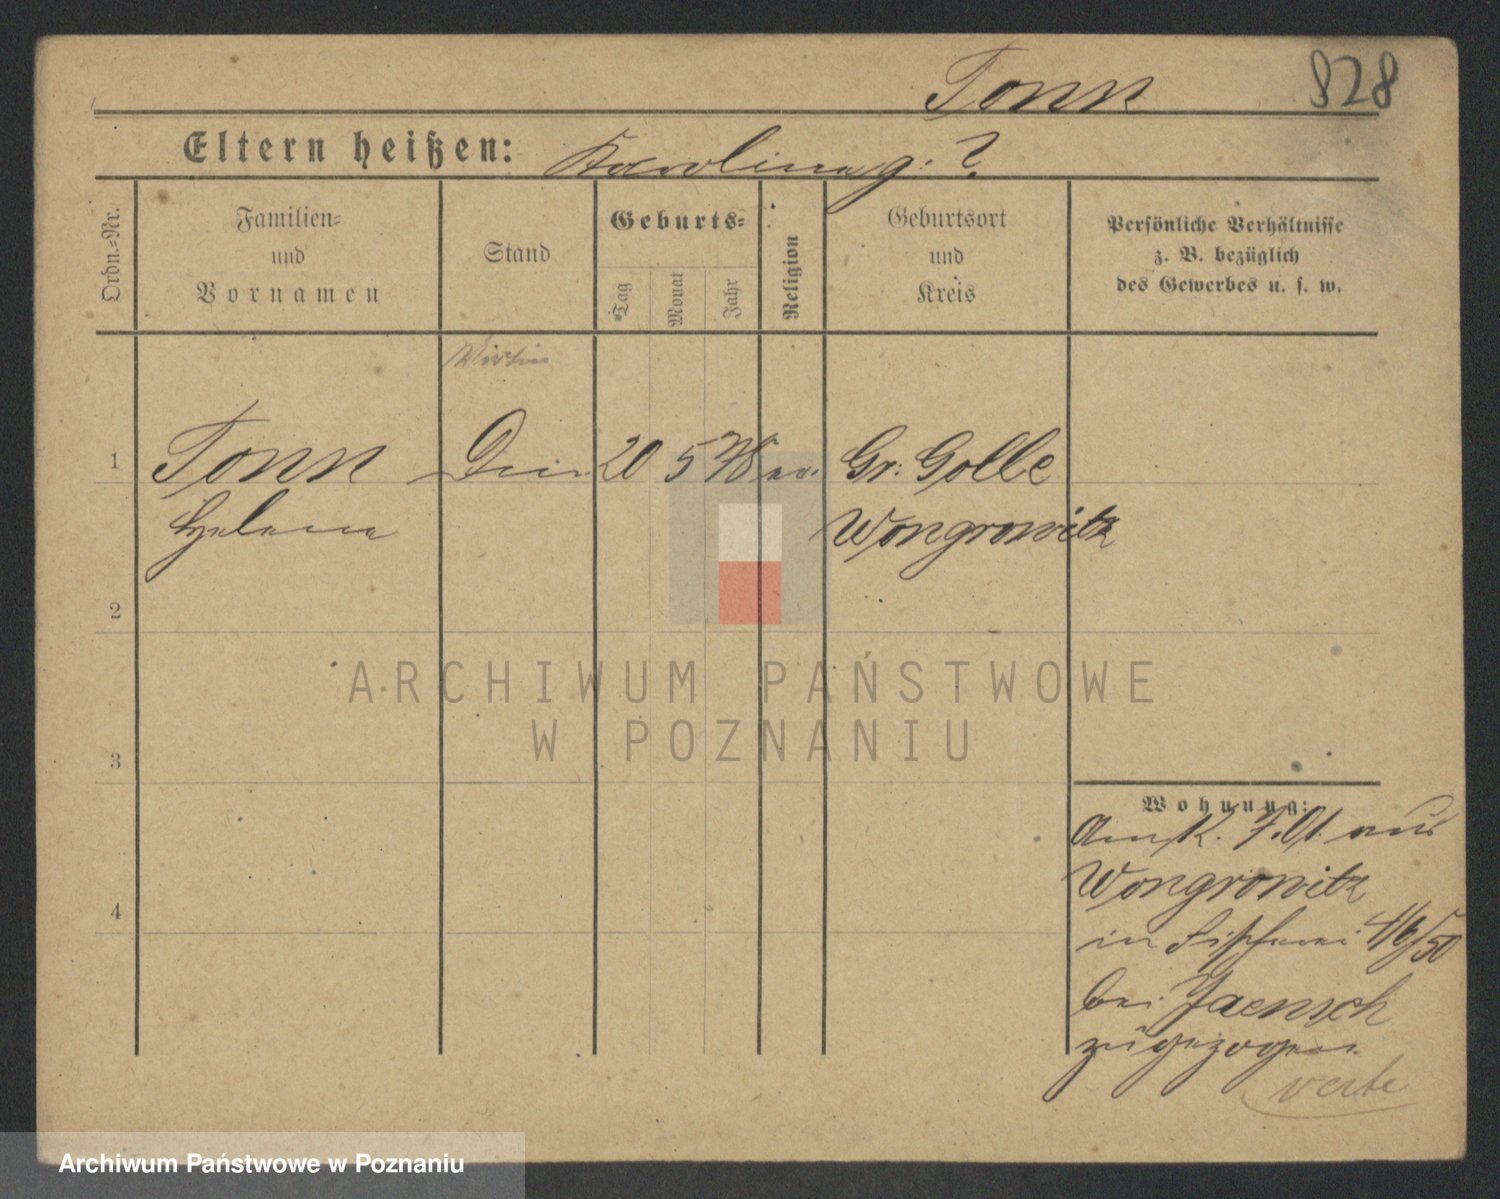 Tonn 828
Eltern heißen: Karolina g: ?
Ordn.-Nr.
Familien-
und
Vornamen
Stand
Geburts-
Tag
Monat
Jahr
Religion
Geburtsort
und
Kreis
Persönliche Verhältnisse
z. B. bezüglich
des Gewerbes u. s. w.
Wirtin
1 Tonn 20 5 78 ev. Gr: Golle
Helene Wongrowitz
2
3
4
Wohnung:
Am aus
Wongrowitz
in
bei Jaensch
zugezogen.
verte
ARCHIWUM PAŃSTWOWE
W POZNANIU
Archiwum Państwowe w Poznaniu